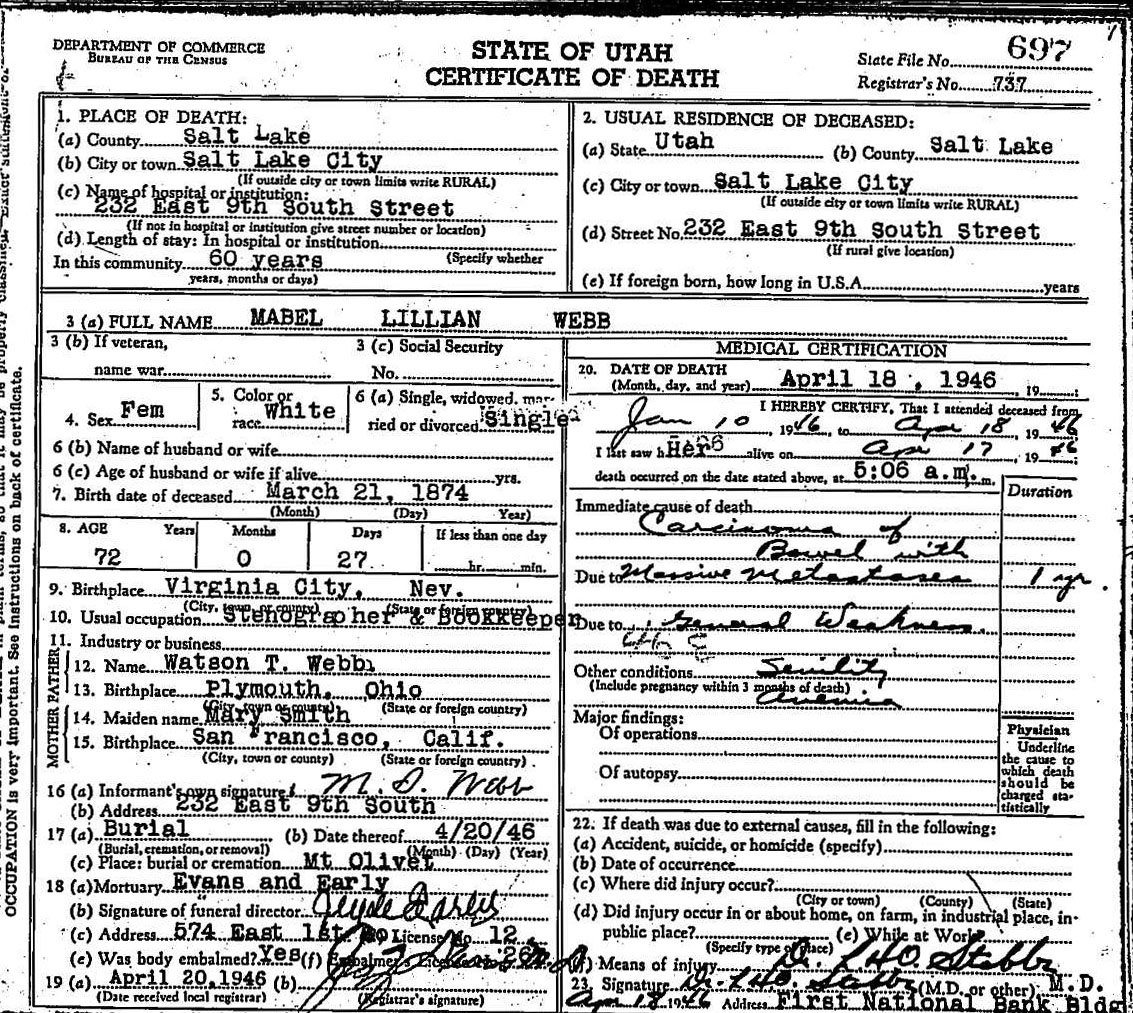 DEPARTMENT OF COMMERCE
BUREAU OF THE CENSUS
STATE OF UTAH
CERTIFICATE OF DEATH
State File No. 697
Registrar's No. 737
1. PLACE OF DEATH:
(a) County Salt Lake
(b) City or town Salt Lake City
(If outside city or town limits write RURAL)
(c) Name of hospital or institution:
232 East 9th South Street
(If not in hospital or institution give street number or location)
(d) Length of stay: In hospital or institution
(Specify whether
In this community 60 years
years, months or days)
2. USUAL RESIDENCE OF DECEASED:
(a) State Utah (b) County Salt Lake
(c) City or town Salt Lake City
(If outside city or town limits write RURAL)
(d) Street No. 232 East 9th South Street
(If rural give location)
(e) If foreign born, how long in U.S.A. years
3 (a) FULL NAME MABEL LILLIAN WEBB
3 (b) If veteran,
name war
3 (c) Social Security
No.
4. Sex Fem
5. Color or
race White
6 (a) Single, widowed, mar-
ried or divorced Single
6 (b) Name of husband or wife
6 (c) Age of husband or wife if alive yrs.
7. Birth date of deceased March 21, 1874
(Month) (Day) Year)
8. AGE Years Months Days If less than one day
72 0 27 hr. min.
9. Birthplace Virginia City, Nev.
(City, town or county) (State or foreign country)
10. Usual occupation Stenographer & Bookkeeper
11. Industry or business
FATHER
12. Name Watson T. Webb
13. Birthplace Plymouth, Ohio
(City, town or county) (State or foreign country)
MOTHER
14. Maiden name Mary Smith
15. Birthplace San Francisco, Calif.
(City, town or county) (State or foreign country)
16 (a) Informant's own signature M. D. Webb
(b) Address 232 East 9th South
17 (a) Burial (b) Date thereof 4/20/46
(Burial, cremation, or removal) (Month) (Day) (Year)
(c) Place: burial or cremation Mt Olivet
18 (a) Mortuary Evans and Early
(b) Signature of funeral director
(c) Address 574 East 1st So License No. 12
(e) Was body embalmed? Yes (f) Embalmer's License
19 (a) April 20, 1946 (b)
(Date received local registrar) (Registrar's signature)
MEDICAL CERTIFICATION
20. DATE OF DEATH
(Month, day, and year) April 18, 1946, 19
I HEREBY CERTIFY, That I attended deceased from
Jan 10, 1946, to Apr 18, 1946
I last saw h Her alive on Apr 17, 1946
death occurred on the date stated above, at 5:06 a.m. m.
Duration
Immediate cause of death
Carcinoma of
Bowel with
Due to Massive Metastases 1 yr.
Due to General Weakness
Other conditions Senility
(Include pregnancy within 3 months of death)
Anemia
Major findings:
Of operations
Of autopsy
Physician
Underline
the cause to
which death
should be
charged sta-
tistically
22. If death was due to external causes, fill in the following:
(a) Accident, suicide, or homicide (specify)
(b) Date of occurrence
(c) Where did injury occur?
(City or town) (County) (State)
(d) Did injury occur in or about home, on farm, in industrial place, in-
public place? (e) While at Work
(Specify type of place)
(f) Means of injury
23. Signature (M.D. or other) M.D.
Apr 18 1946 Address First National Bank Bldg
OCCUPATION is very important. See instructions on back of certificate.